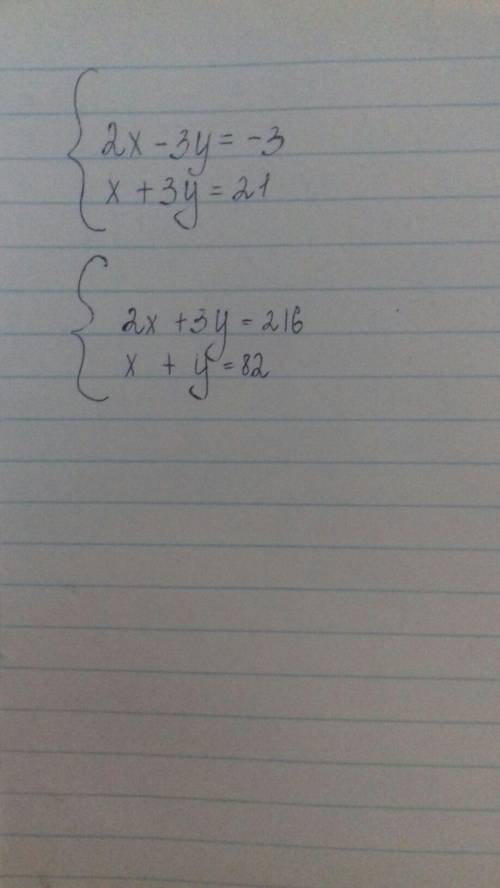 2x - 3y = -3
x + 3y = 21
2x + 3y = 216
x + y = 82